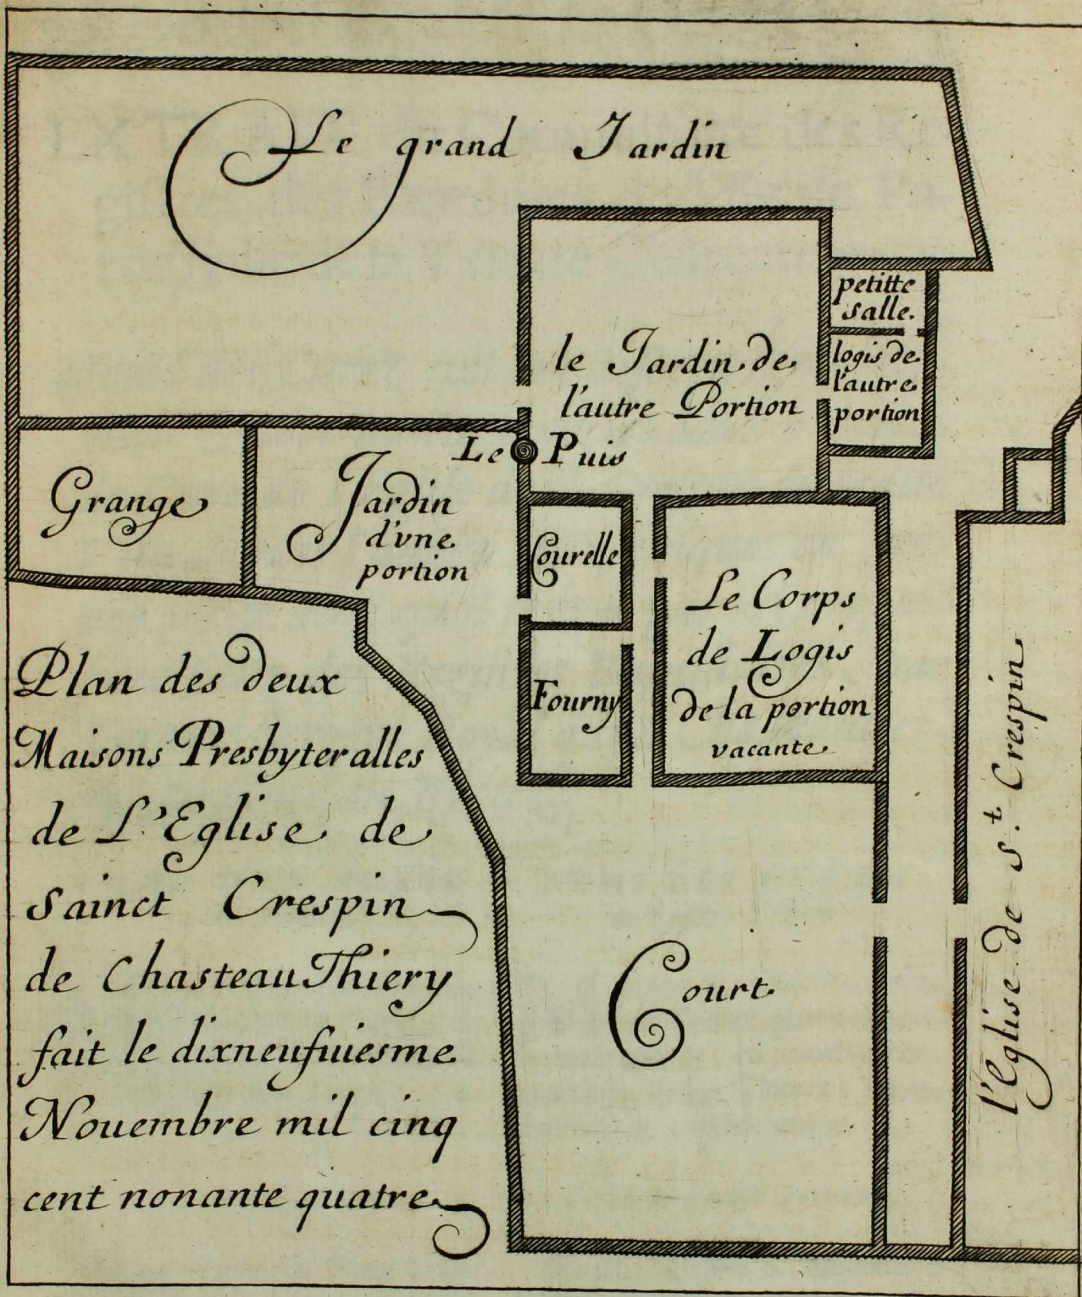 Le grand Jardin
petitte
salle.
logis de
l'autre
portion
le Jardin de
l'autre Portion
Le Puis
Grange
Jardin
d'vne
portion
Courelle
Fourny
Le Corps
de Logis
de la portion
vacante.
Court.
l'Eglise de St. Crespin
Plan des deux
Maisons Presbyteralles
de L'Eglise de
Sainct Crespin
de Chasteau Thiery
fait le dixneufuiesme
Nouembre mil cinq
cent nonante quatre